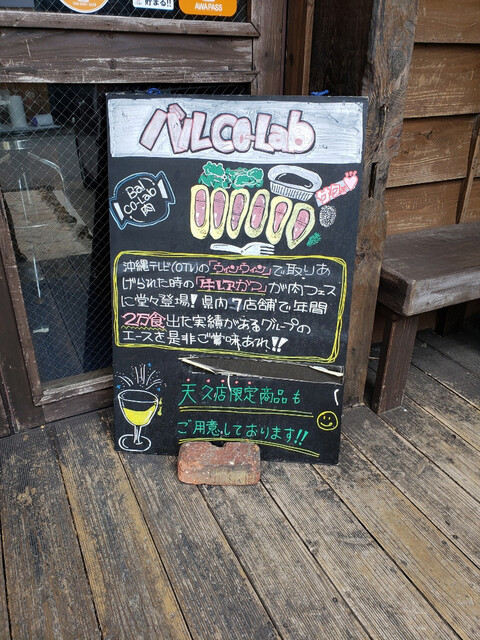 貯まる!!
AWAPASS
バルCo-Lab
Bal
co-lab
肉
沖縄テレビ(OTV)の「ウィンウィン」で取りあ
げられた時の「牛レアかつ」が肉フェス
に堂々登場!県内7店舗で年間
2万食出た実績があるグループの
エースを是非ご賞味あれ!!
天久店限定商品も
ご用意しております!!